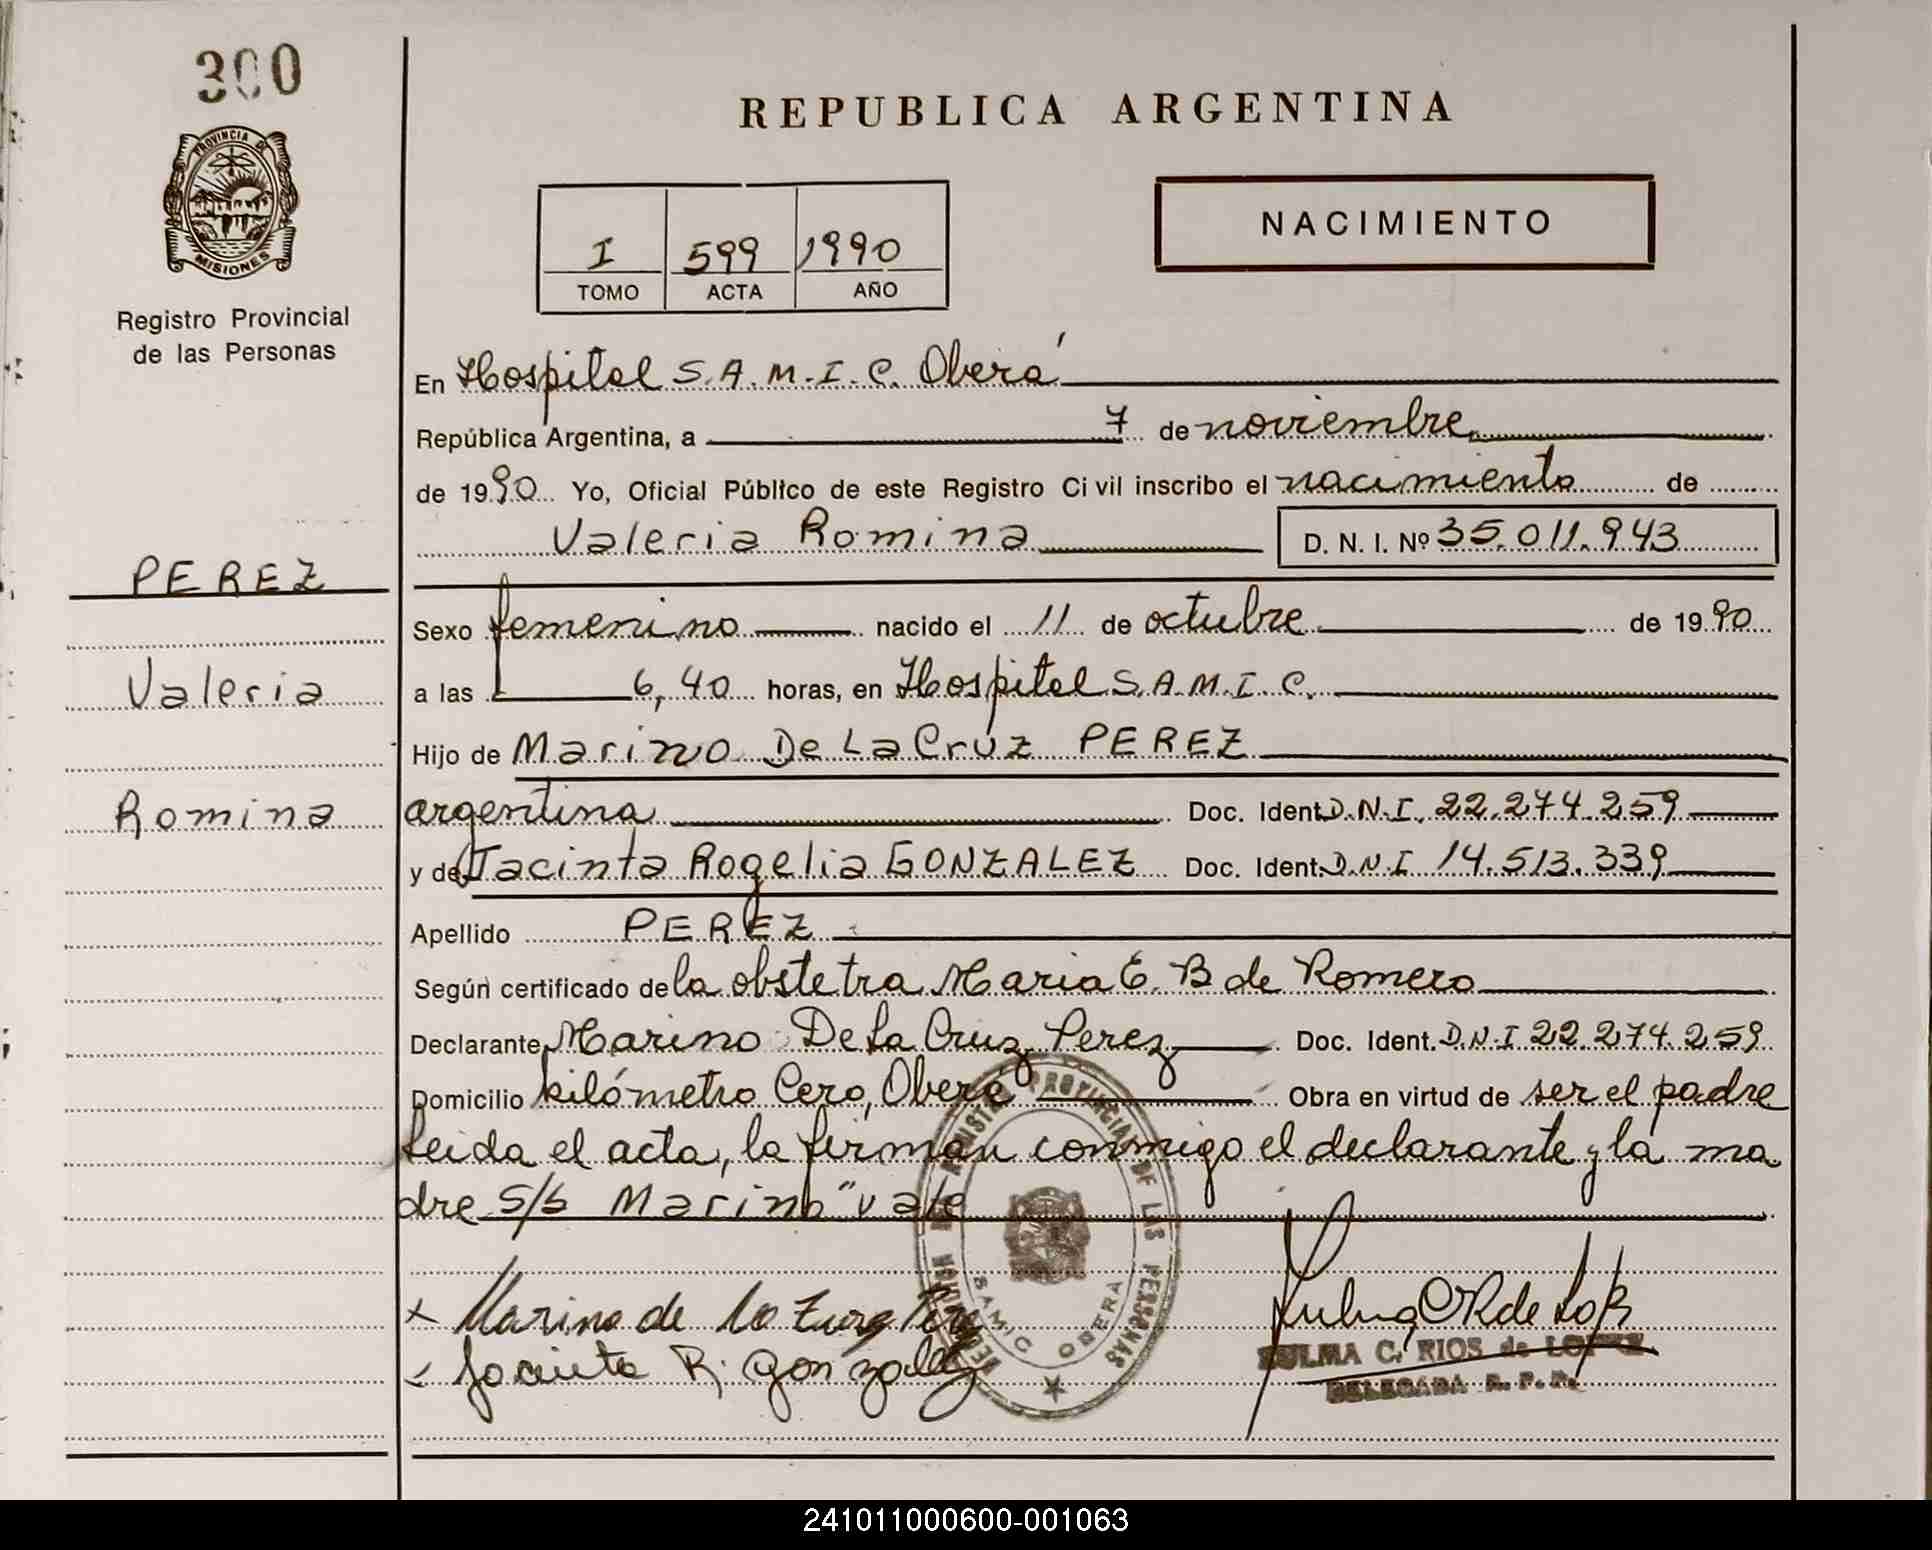 300
REPUBLICA ARGENTINA
PROVINCIA DE
MISIONES
Registro Provincial
de las Personas
NACIMIENTO
I 599 1990
TOMO ACTA AÑO
En Hospital S.A.M.I.C. Oberá
República Argentina, a 7 de noviembre
de 1990 Yo, Oficial Público de este Registro Civil inscribo el nacimiento de
Valeria Romina D. N. I. Nº 35.011.943
PEREZ
Valeria
Romina
Sexo femenino nacido el 11 de octubre de 1990
a las 6,40 horas, en Hospital S.A.M.I.C.
Hijo de Marino De La Cruz PEREZ
argentina Doc. Ident. D.N.I. 22.274.259
y de Jacinta Rogelia GONZALEZ Doc. Ident. D.N.I 14.513.339
Apellido PEREZ
Según certificado de la obstetra Maria E. B de Romero
Declarante Marino De La Cruz Perez Doc. Ident. D.N.I 22.274.259
Domicilio kilómetro Cero, Oberá Obra en virtud de ser el padre
Leida el acta, la firman conmigo el declarante y la ma
dre S/b Marino "vale
PROVINCIAL DE LAS PERSONAS
SAMIC OBERA
Marino de la Perez
Jacinta R. Gonzalez
ZULMA C. RIOS de LOPEZ
DELEGADA R. P. P.
241011000600-001063